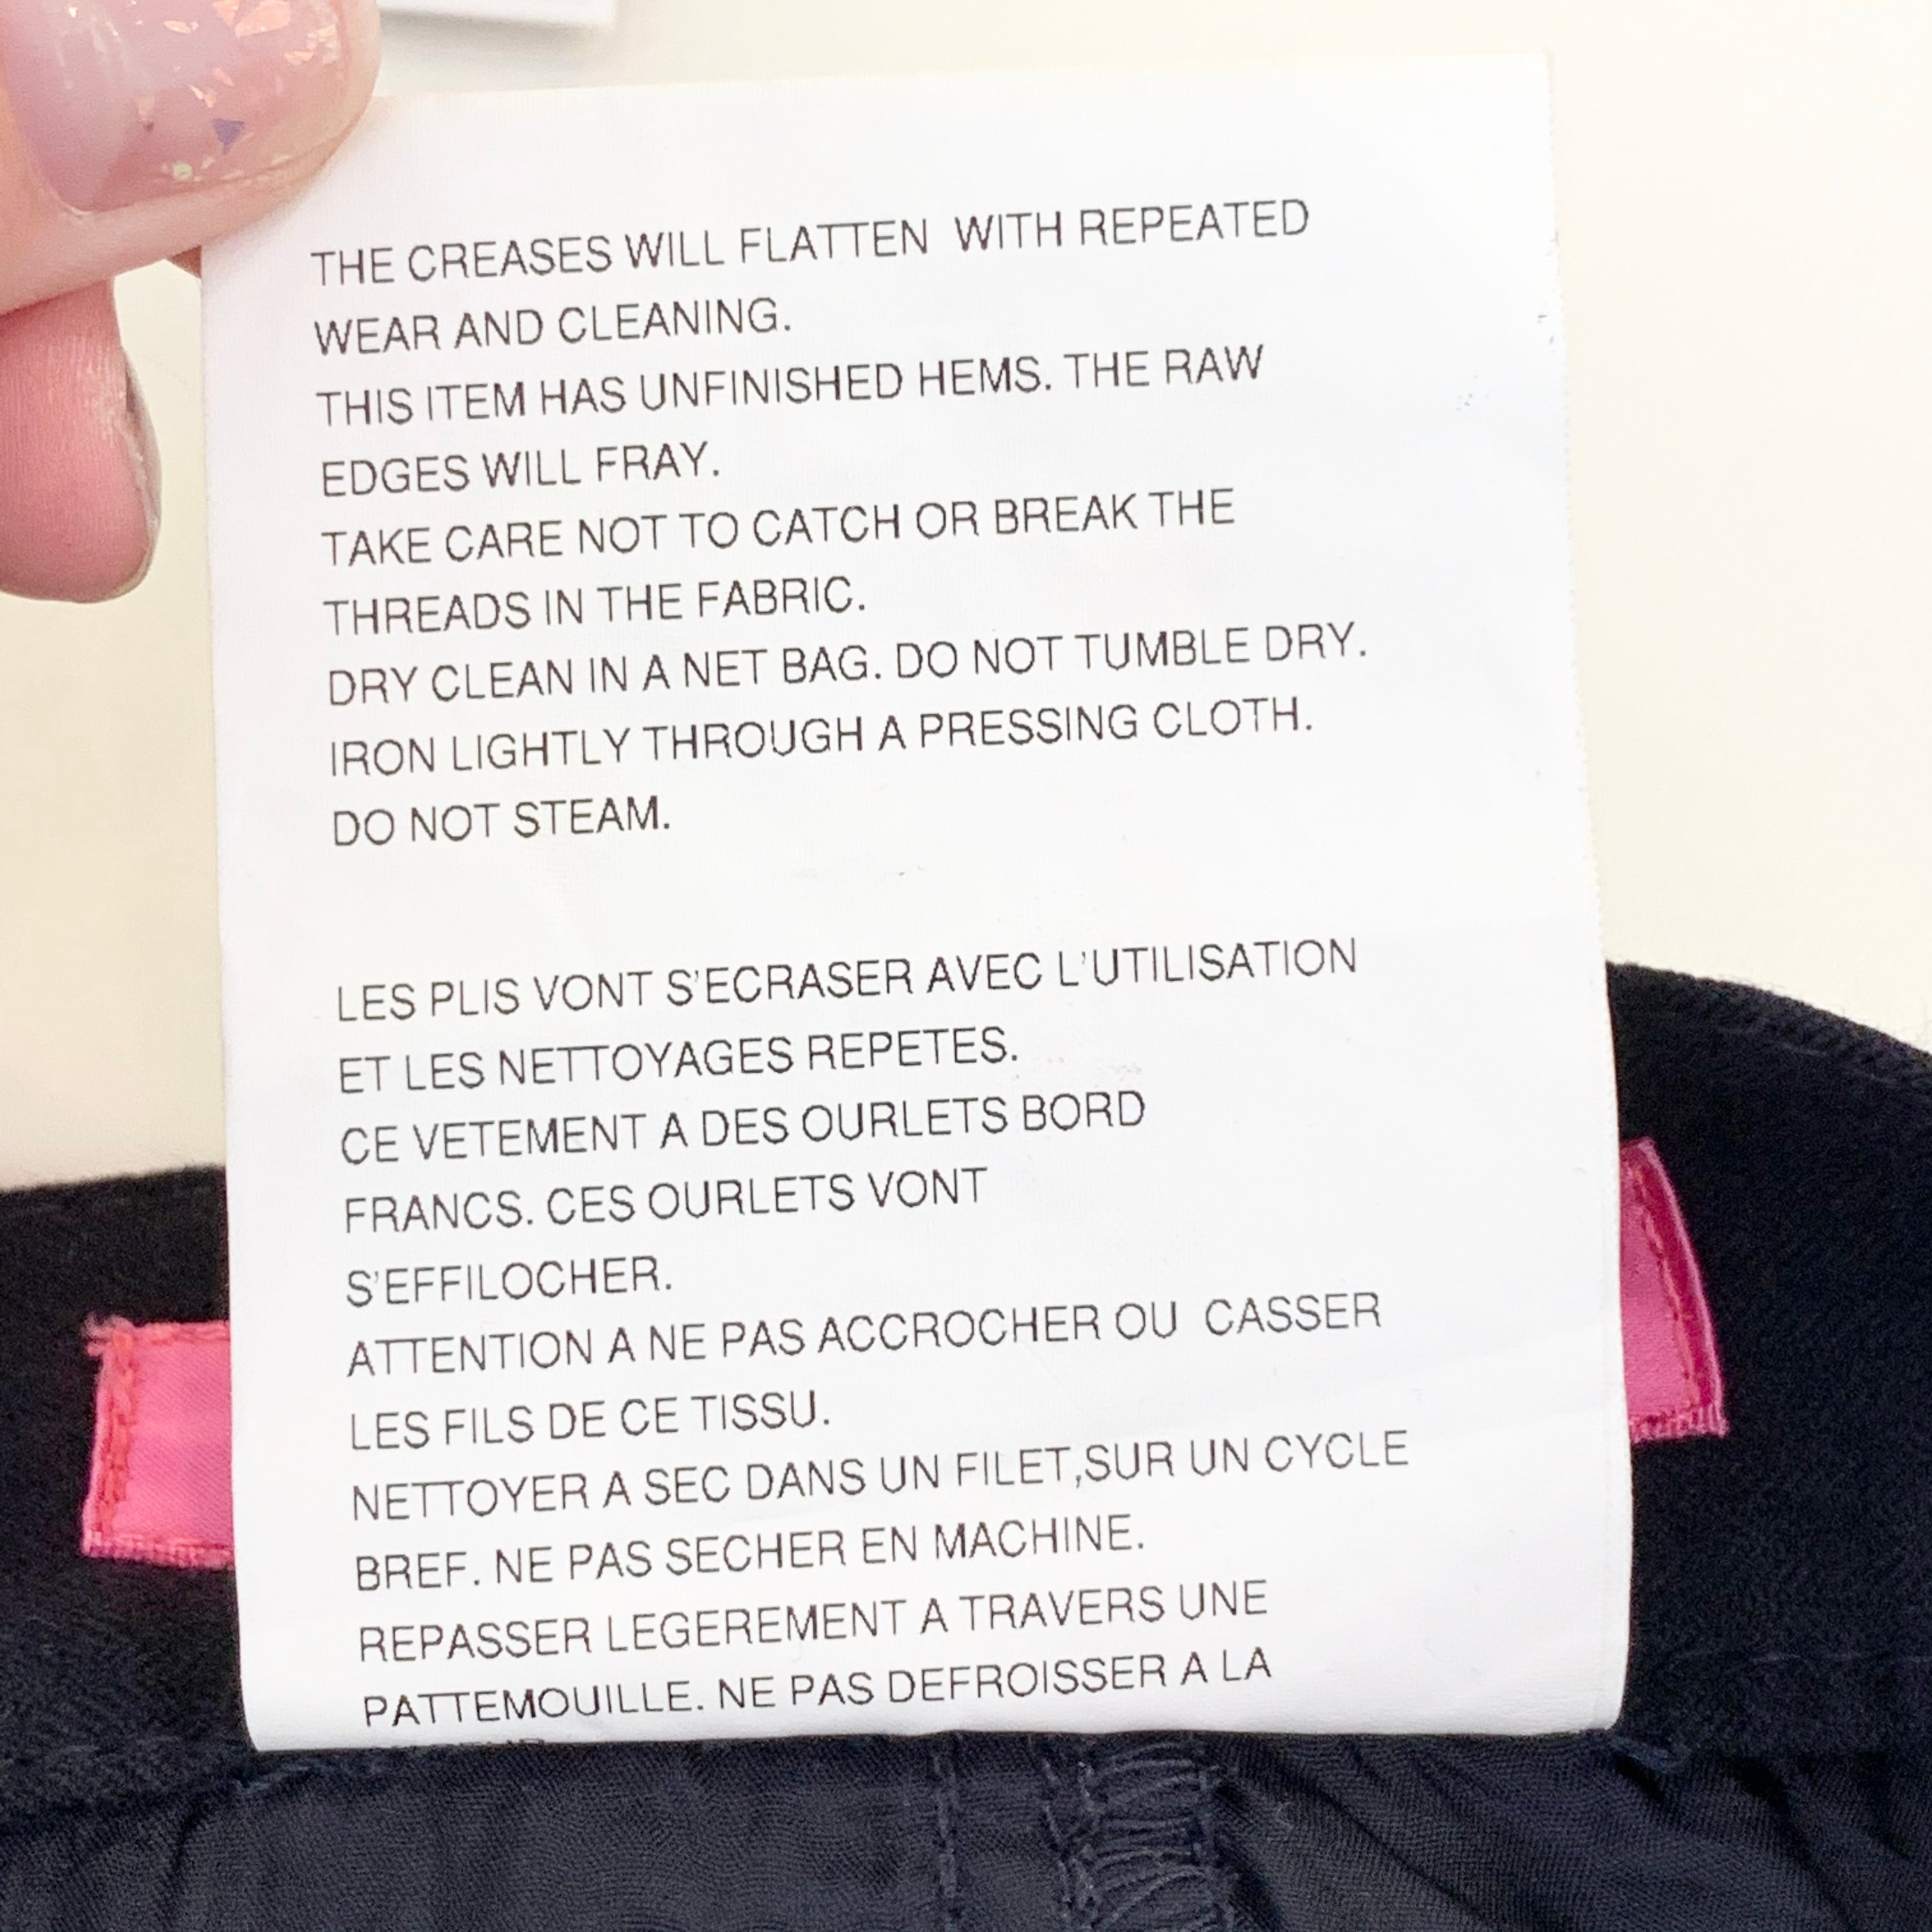 THE CREASES WILL FLATTEN  WITH REPEATED
WEAR AND CLEANING.
THIS ITEM HAS UNFINISHED HEMS. THE RAW
EDGES WILL FRAY.
TAKE CARE NOT TO CATCH OR BREAK THE
THREADS IN THE FABRIC.
DRY CLEAN IN A NET BAG. DO NOT TUMBLE DRY.
IRON LIGHTLY THROUGH A PRESSING CLOTH.
DO NOT STEAM.
LES PLIS VONT S'ECRASER AVEC L'UTILISATION
ET LES NETTOYAGES REPETES.
CE VETEMENT A DES OURLETS BORD
FRANCS. CES OURLETS VONT
S'EFFILOCHER.
ATTENTION A NE PAS ACCROCHER OU  CASSER
LES FILS DE CE TISSU.
NETTOYER A SEC DANS UN FILET,SUR UN CYCLE
BREF. NE PAS SECHER EN MACHINE.
REPASSER LEGEREMENT A TRAVERS UNE
PATTEMOUILLE. NE PAS DEFROISSER A LA